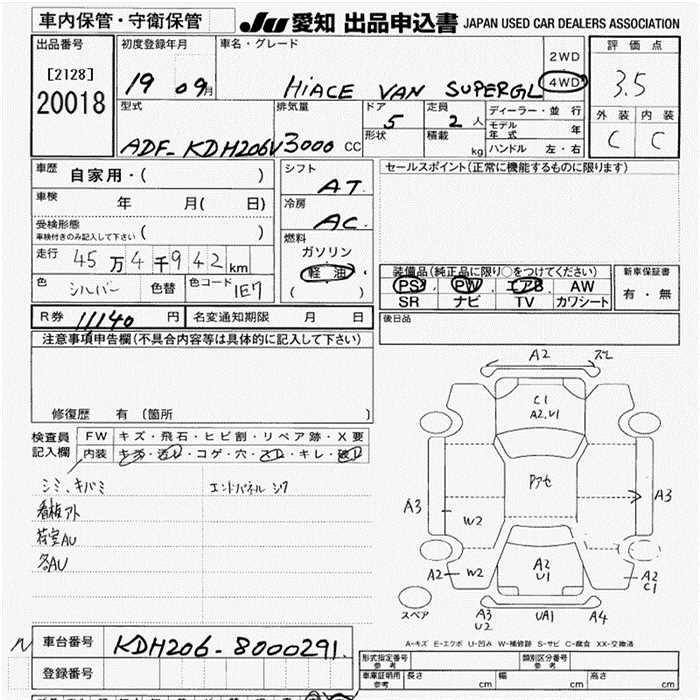 車内保管・守衛保管
JU 愛知 出品申込書 JAPAN USED CAR DEALERS ASSOCIATION
出品番号
[2128]
20018
初度登録年月
19 09月
車名・グレード
HIACE VAN SUPERGL
2WD
4WD
評価点
3.5
外装 内装
C C
型式
ADF-KDH206V
排気量
3000 CC
ドア
5
形状
定員
2 人
積載
kg
ディーラー・並行
モデル年式 年
ハンドル 左・右
車歴
自家用・( )
車検
年 月( 日)
受検形態
車検付きのみ記入して下さい ( )
走行
45万4千942km
色 シルバー 色替 色コード 1E7
シフト
AT
冷房
AC
燃料
ガソリン
軽油
( )
セールスポイント(正常に機能するものに限ります)
装備品(純正品に限り○をつけてください)
PS PW エアB AW
SR ナビ TV カワシート
新車保証書
有・無
R券 11140 円 名変通知期限 月 日
後日品
注意事項申告欄(不具合内容等は具体的に記入して下さい)
修復歴 有 〔箇所 〕
検査員
記入欄
FW キズ・飛石・ヒビ割・リペア跡・X要
内装 キズ・汚レ・コゲ・穴・スレ・キレ・破レ
シミ、キバミ エンドパネル シワ
看板アト
荷室AU
各AU
A2 スレ
C1
A2,U1
Pアセ
A3 A3
W2
A2 W2
A2
U1
A2
C1
スペア
A3
U2
UA1 A4
A-キズ E-エクボ U-凹み W-補修跡 S-サビ C-腐食 XX-交換済
N
車台番号 KDH206-8000291.
登録番号
形式指定番号
参考
類別区分番号
参考
車庫証明用
参考
長さ cm 幅 cm 高さ cm